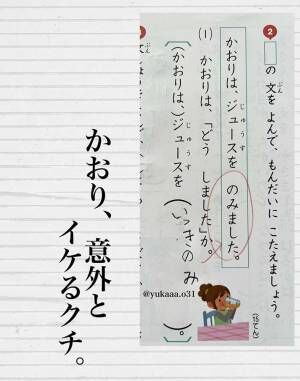 2 □の 文を よんで、もんだいに こたえましょう。
かおりは、ジュースを のみました。
じゅうす
(1) かおりは、「どう しました」か。
(15てん)
(かおりは、)ジュースを (いっきのみ)。
@yukaaa.o31
かおり、意外と
イケるクチ。